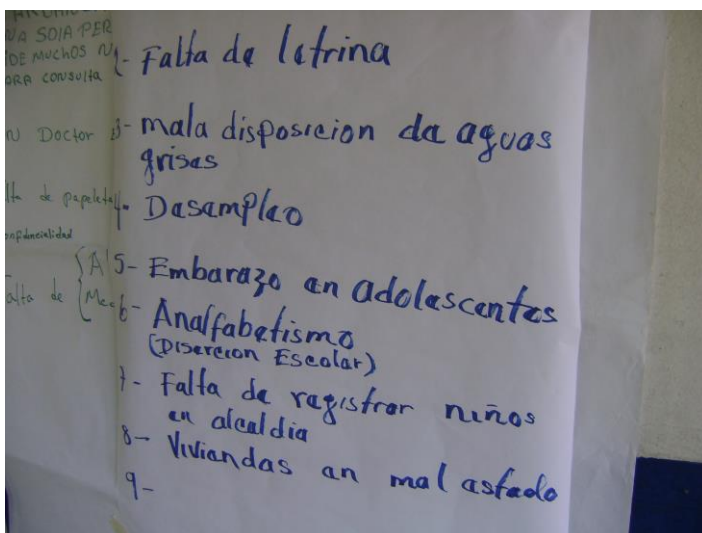 SOIA PER
DE MUCHOS
CONSULTA
Doctor
de papeleta
de
- Falta de letrina
3- mala disposicion de aguas
grises
4- Desempleo
5- Embarazo en adolescentes
6- Analfabetismo
(Disercion Escolar)
7- Falta de registrar niños
en alcaldia
8- Viviendas en mal estado
9-